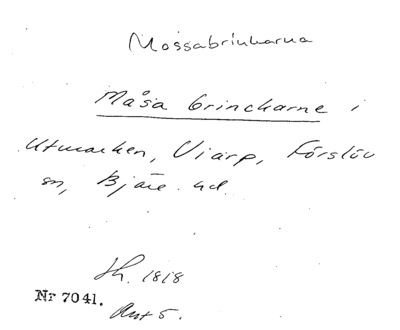 Mossabrinkarna
Måsa brinckarne i
Utmarken, Viarp, Förslöv
sn, Bjäre hd.
Sk. 1818
Nr 7041.
Akt 5.